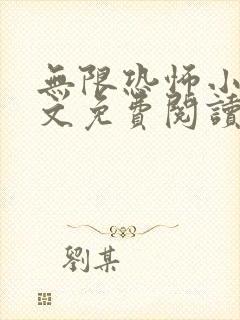 無限恐怖小
文免費閱讀
劉某